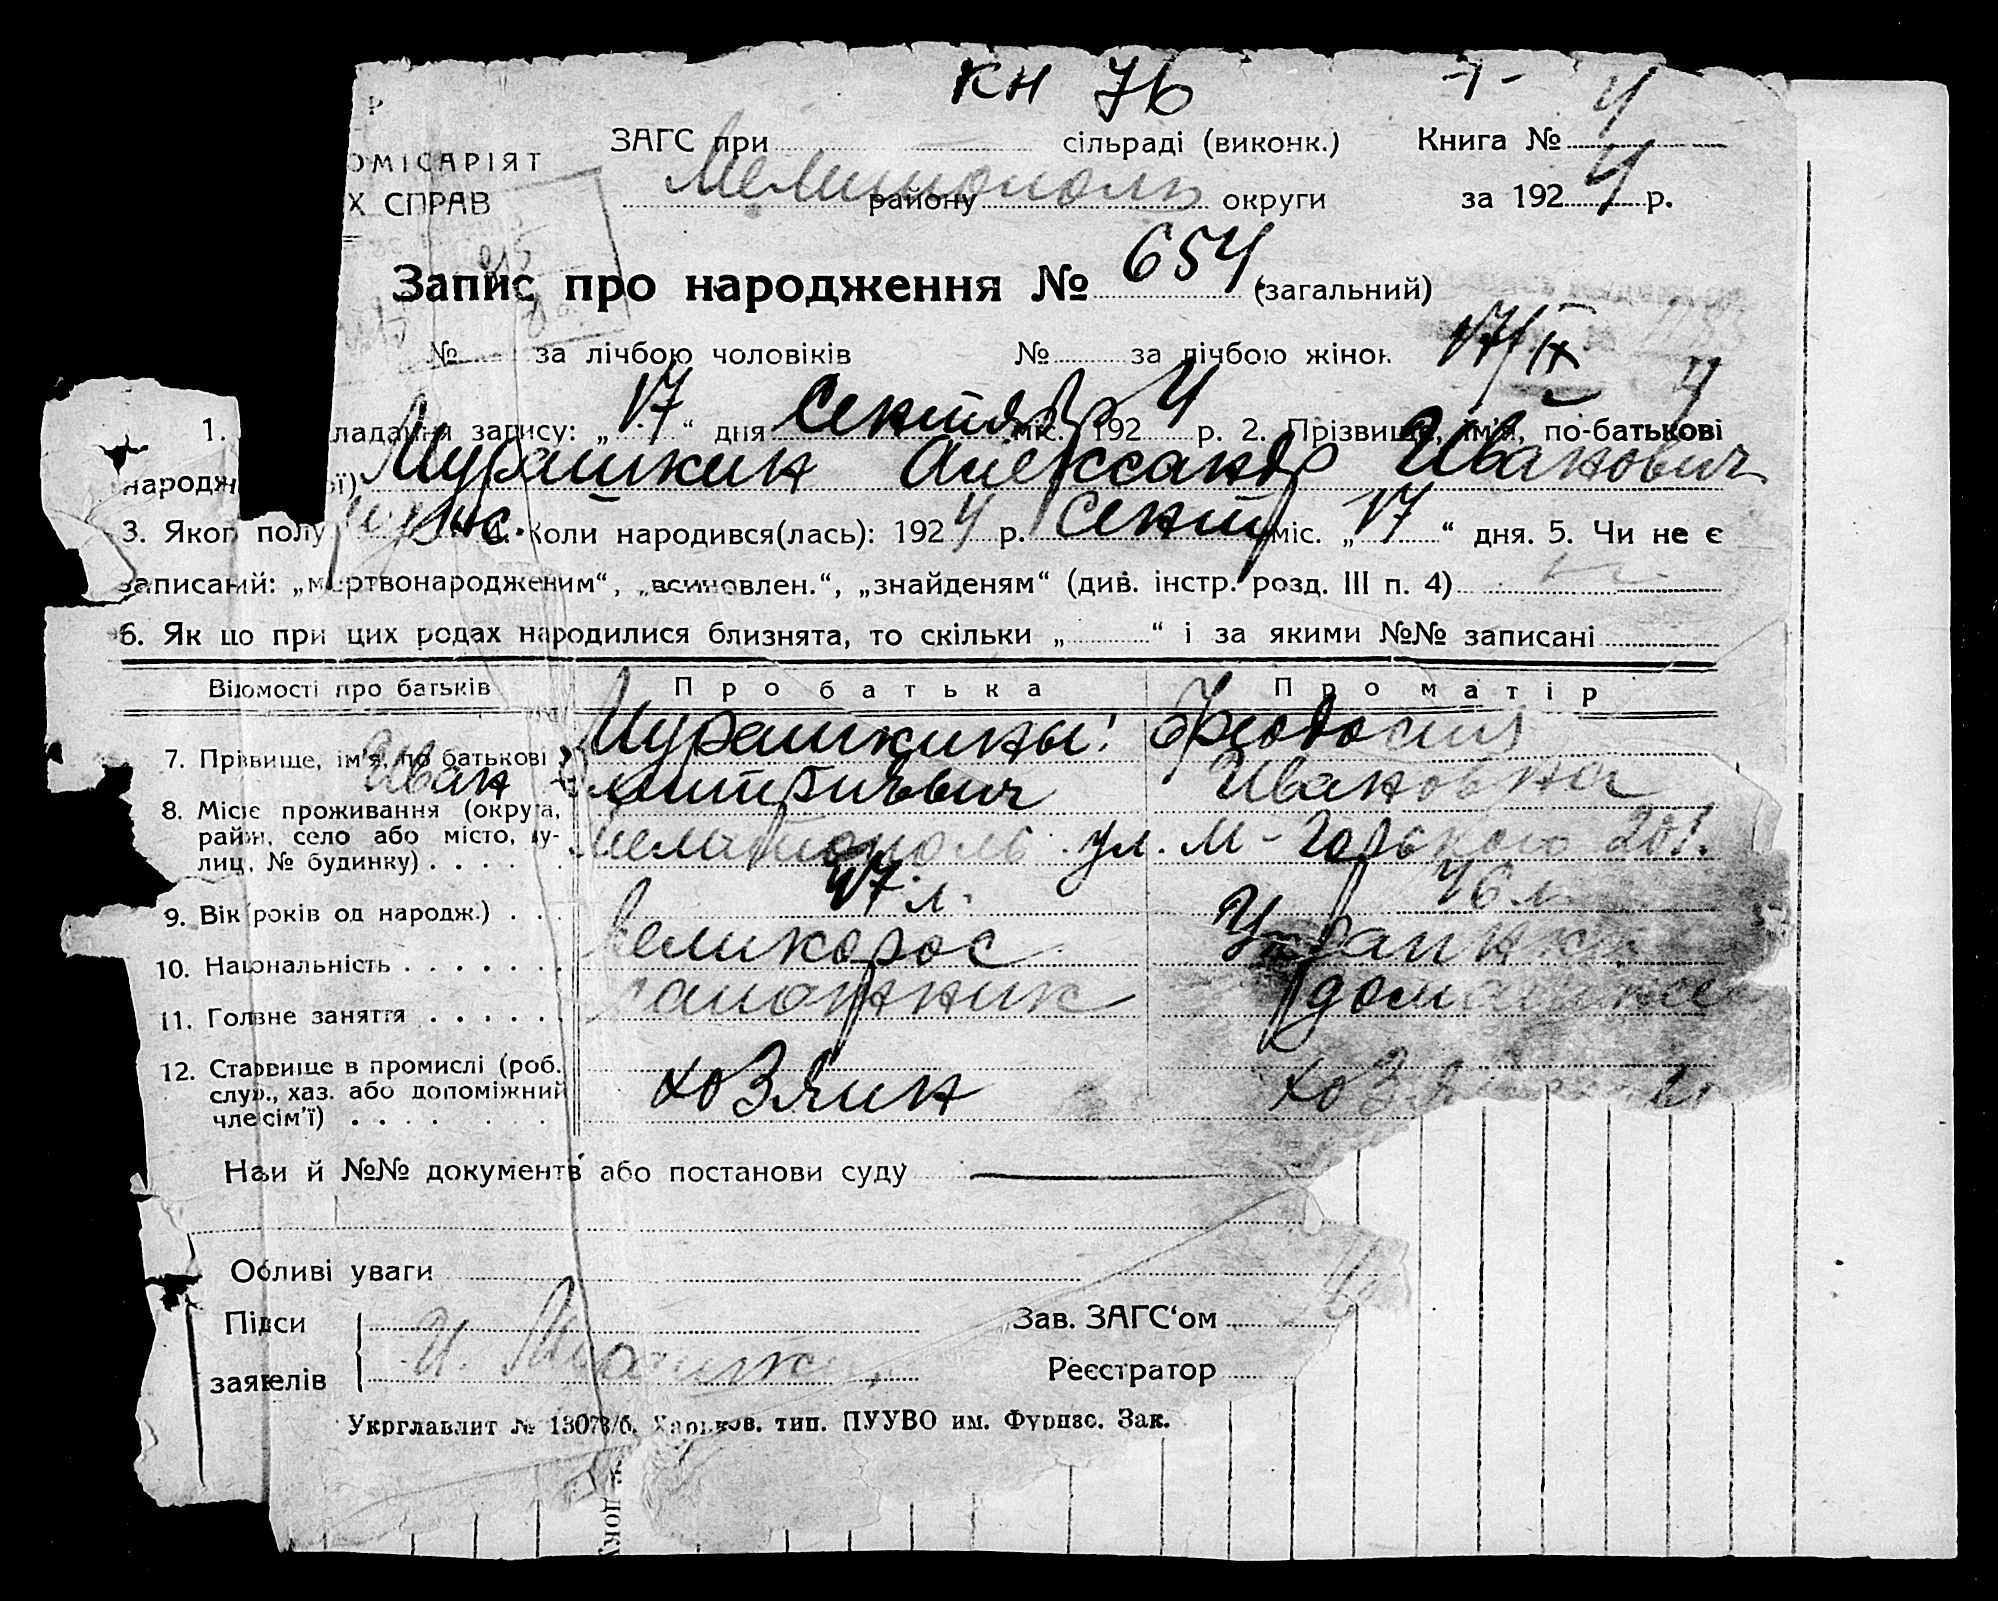 кн 76
ЗАГС при сільраді (виконк.) Книга № 4
ОМІСАРІЯТ
Мелитополь
Х СПРАВ району округи за 1924 р.
Запис про народження № 654 (загальний)
№ за лічбою чоловіків № за лічбою жінок 17/IX 4
1. ладання запису: „17“ дня Сентяб міс. 1924 р. 2. Прізвище, ім'я, по-батькові
народж ої) Мурашкин Александр Иванович
3. Якого полу муж. 4. Коли народився(лась): 1924 р. Сент міс. „17“ дня. 5. Чи не є
записаний: „мертвонародженим“, „всиновлен.“, „знайденям“ (див. інстр. розд. III п. 4)
6. Як що при цих родах народилися близнята, то скільки „ “ і за якими №№ записані
Відомості про батьків Про батька Про матір
Мурашкины: Феодосия
7. Прізвище, ім'я, по батькові
Иван Дмитриевич Ивановна
8. Місце проживання (округа,
район, село або місто, ву-
лиц, № будинку) Мелитополь ул. М-Горького 201.
9. Вік (років од народж.) 47 л. 46 л
10. Національність Великорос Украинка
11. Головне заняття сапожник домашнее
12. Становище в промислі (роб.
служ., хаз. або допоміжний
хозяин
член сім'ї)
Назви й №№ документів або постанови суду
Особливі уваги
Підписи Зав. ЗАГС'ом
И. Мурашкин
заявителів Реєстратор
Укрглавлит № 13078/б. Харьков. тип. ПУУВО им. Фрунзе. Зак.
доку